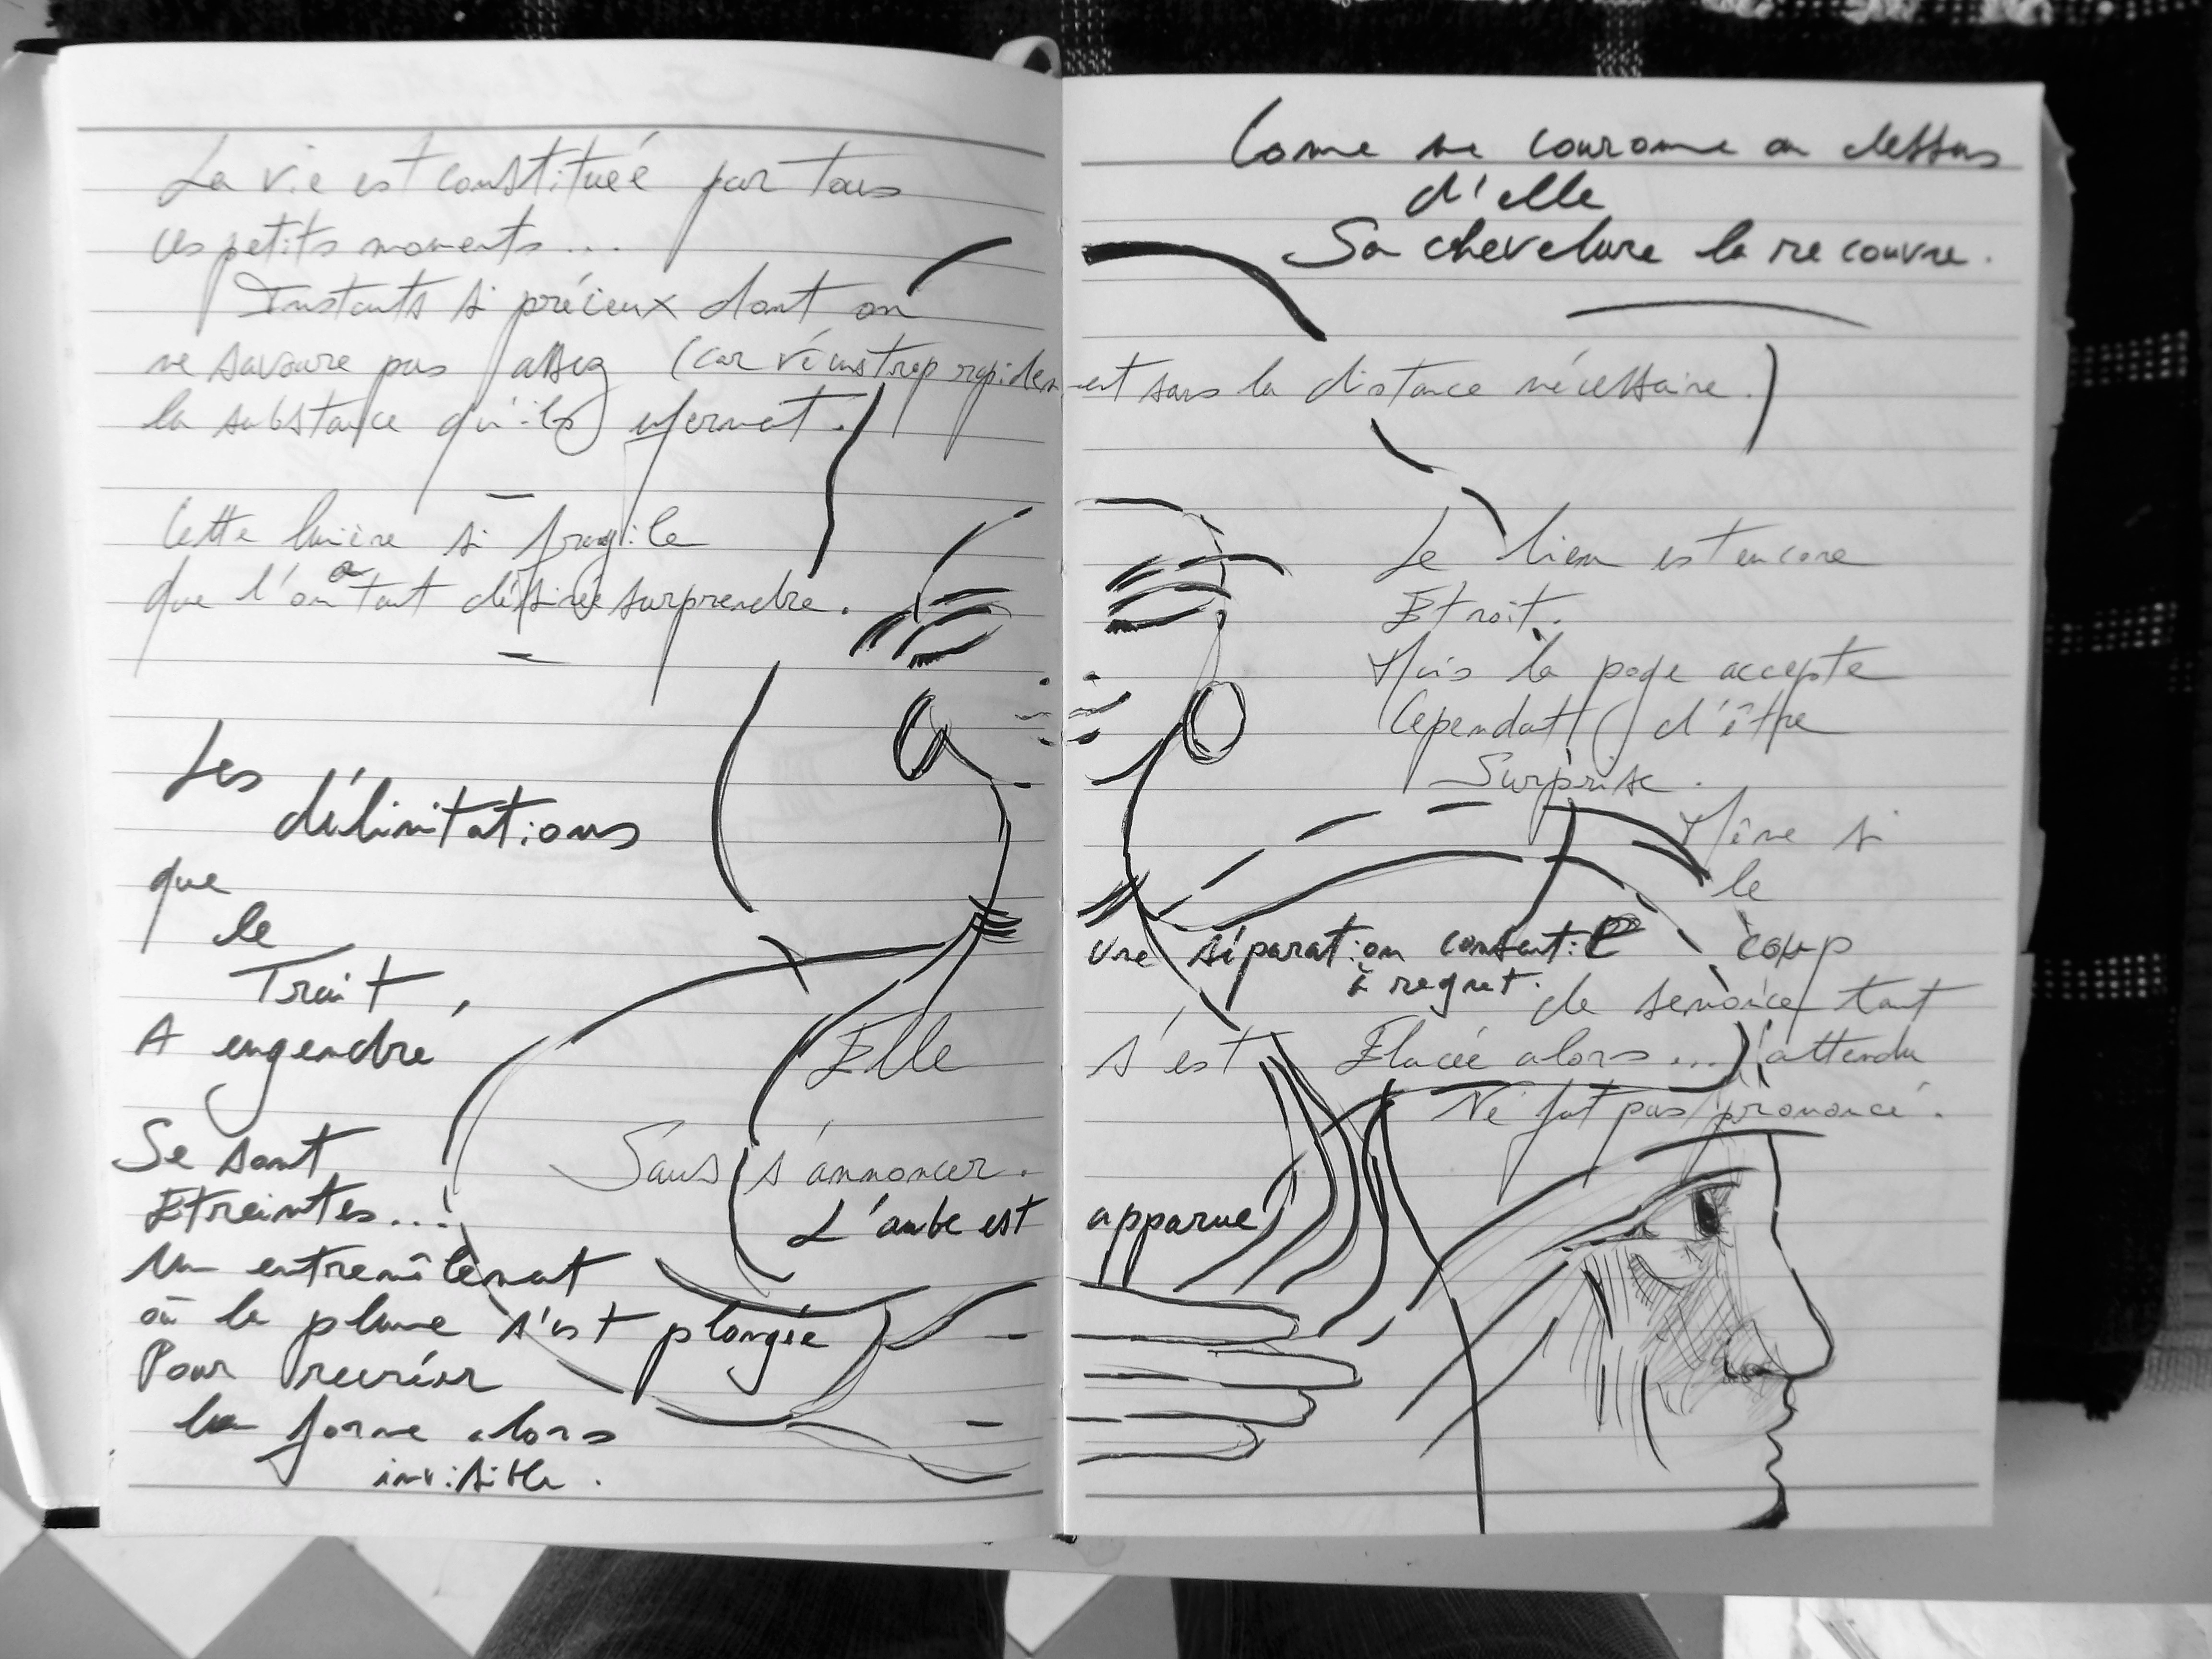 La vie est constituée par tous
ces petits moments...
Instants si précieux dont on
ne savoure pas assez (car vécus trop rapidement sans la distance nécessaire.)
la substance qu'ils
Cette lumière si fragile
que l'on a tant désirée surprendre.
Les
délimitations
que
le
Trait,
A engendré
Se sont
Etreintes...
Un entremêlement
où la plume s'est plongée
Pour recréer
la forme alors
invisible.
Elle s'est Elacée alors...
Sans s'annoncer.
L'aube est apparue
Come une couronne au dessus
d'elle
Sa chevelure la recouvre.
Le lien est encore
Etroit.
Mais la page accepte
Cependant d'être
Surprise.
Même si
le
coup
de semonce tant
attendu
Ne fut pas prononcé.
une séparation consentie
à regret.